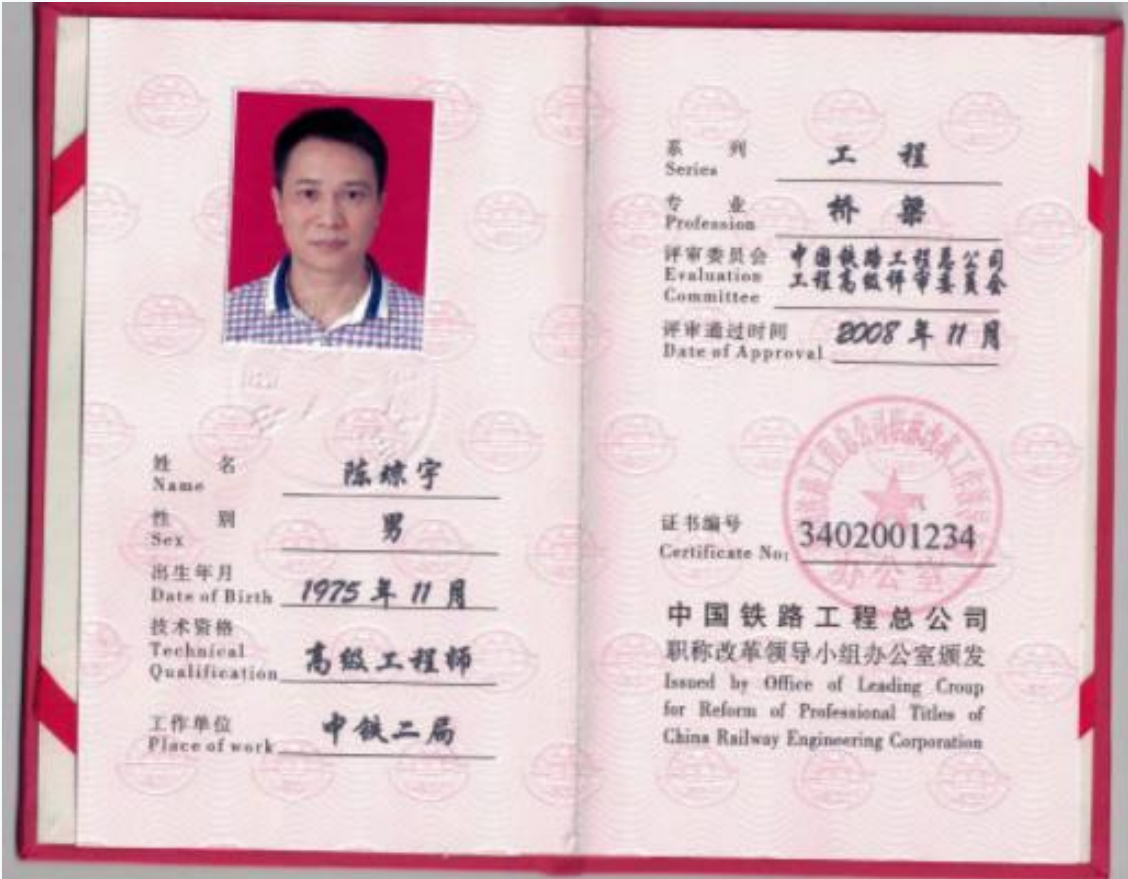 姓 名
Name
陈琼宇
性 别
Sex
男
出生年月
Date of Birth
1975 年 11 月
技术资格
Technical
Qualification
高级工程师
工作单位
Place of work
中铁二局
系 列
Series
工 程
专 业
Profession
桥 梁
评审委员会
Evaluation
Committee
中国铁路工程总公司
工程高级评审委员会
评审通过时间
Date of Approval
2008 年 11 月
证书编号
Certificate No:
3402001234
办公室
中国铁路工程总公司
职称改革领导小组办公室颁发
Issued by Office of Leading Croup
for Reform of Professional Titles of
China Railway Engineering Corporation